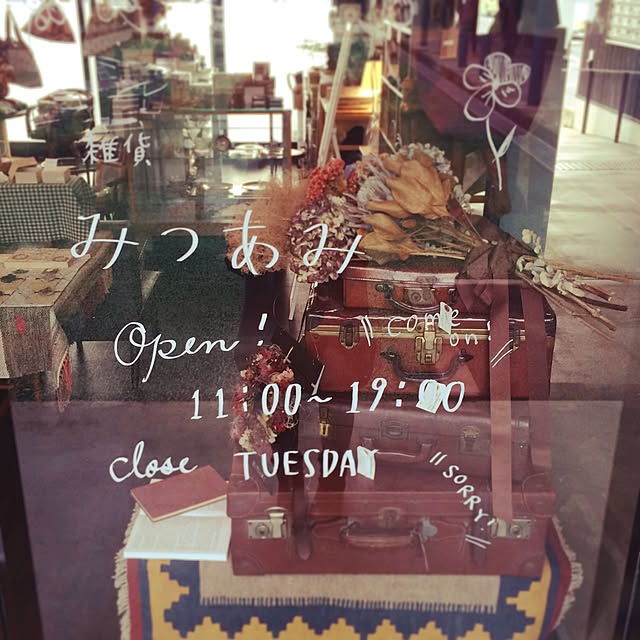 雑貨
みつあみ
Open!
\\ COME on! //
11:00~19:00
close TUESDAY
\\ SORRY! //